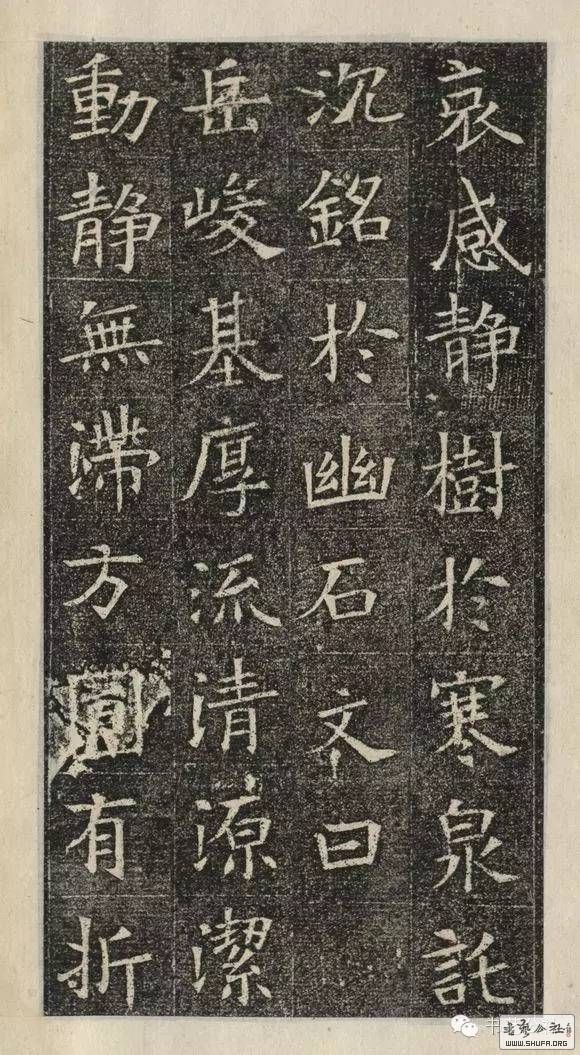 哀感静樹於寒泉託
沉銘於幽石文曰
岳峻基厚流清源潔
動静無滯方圓有折
WWW.SHUFA.ORG